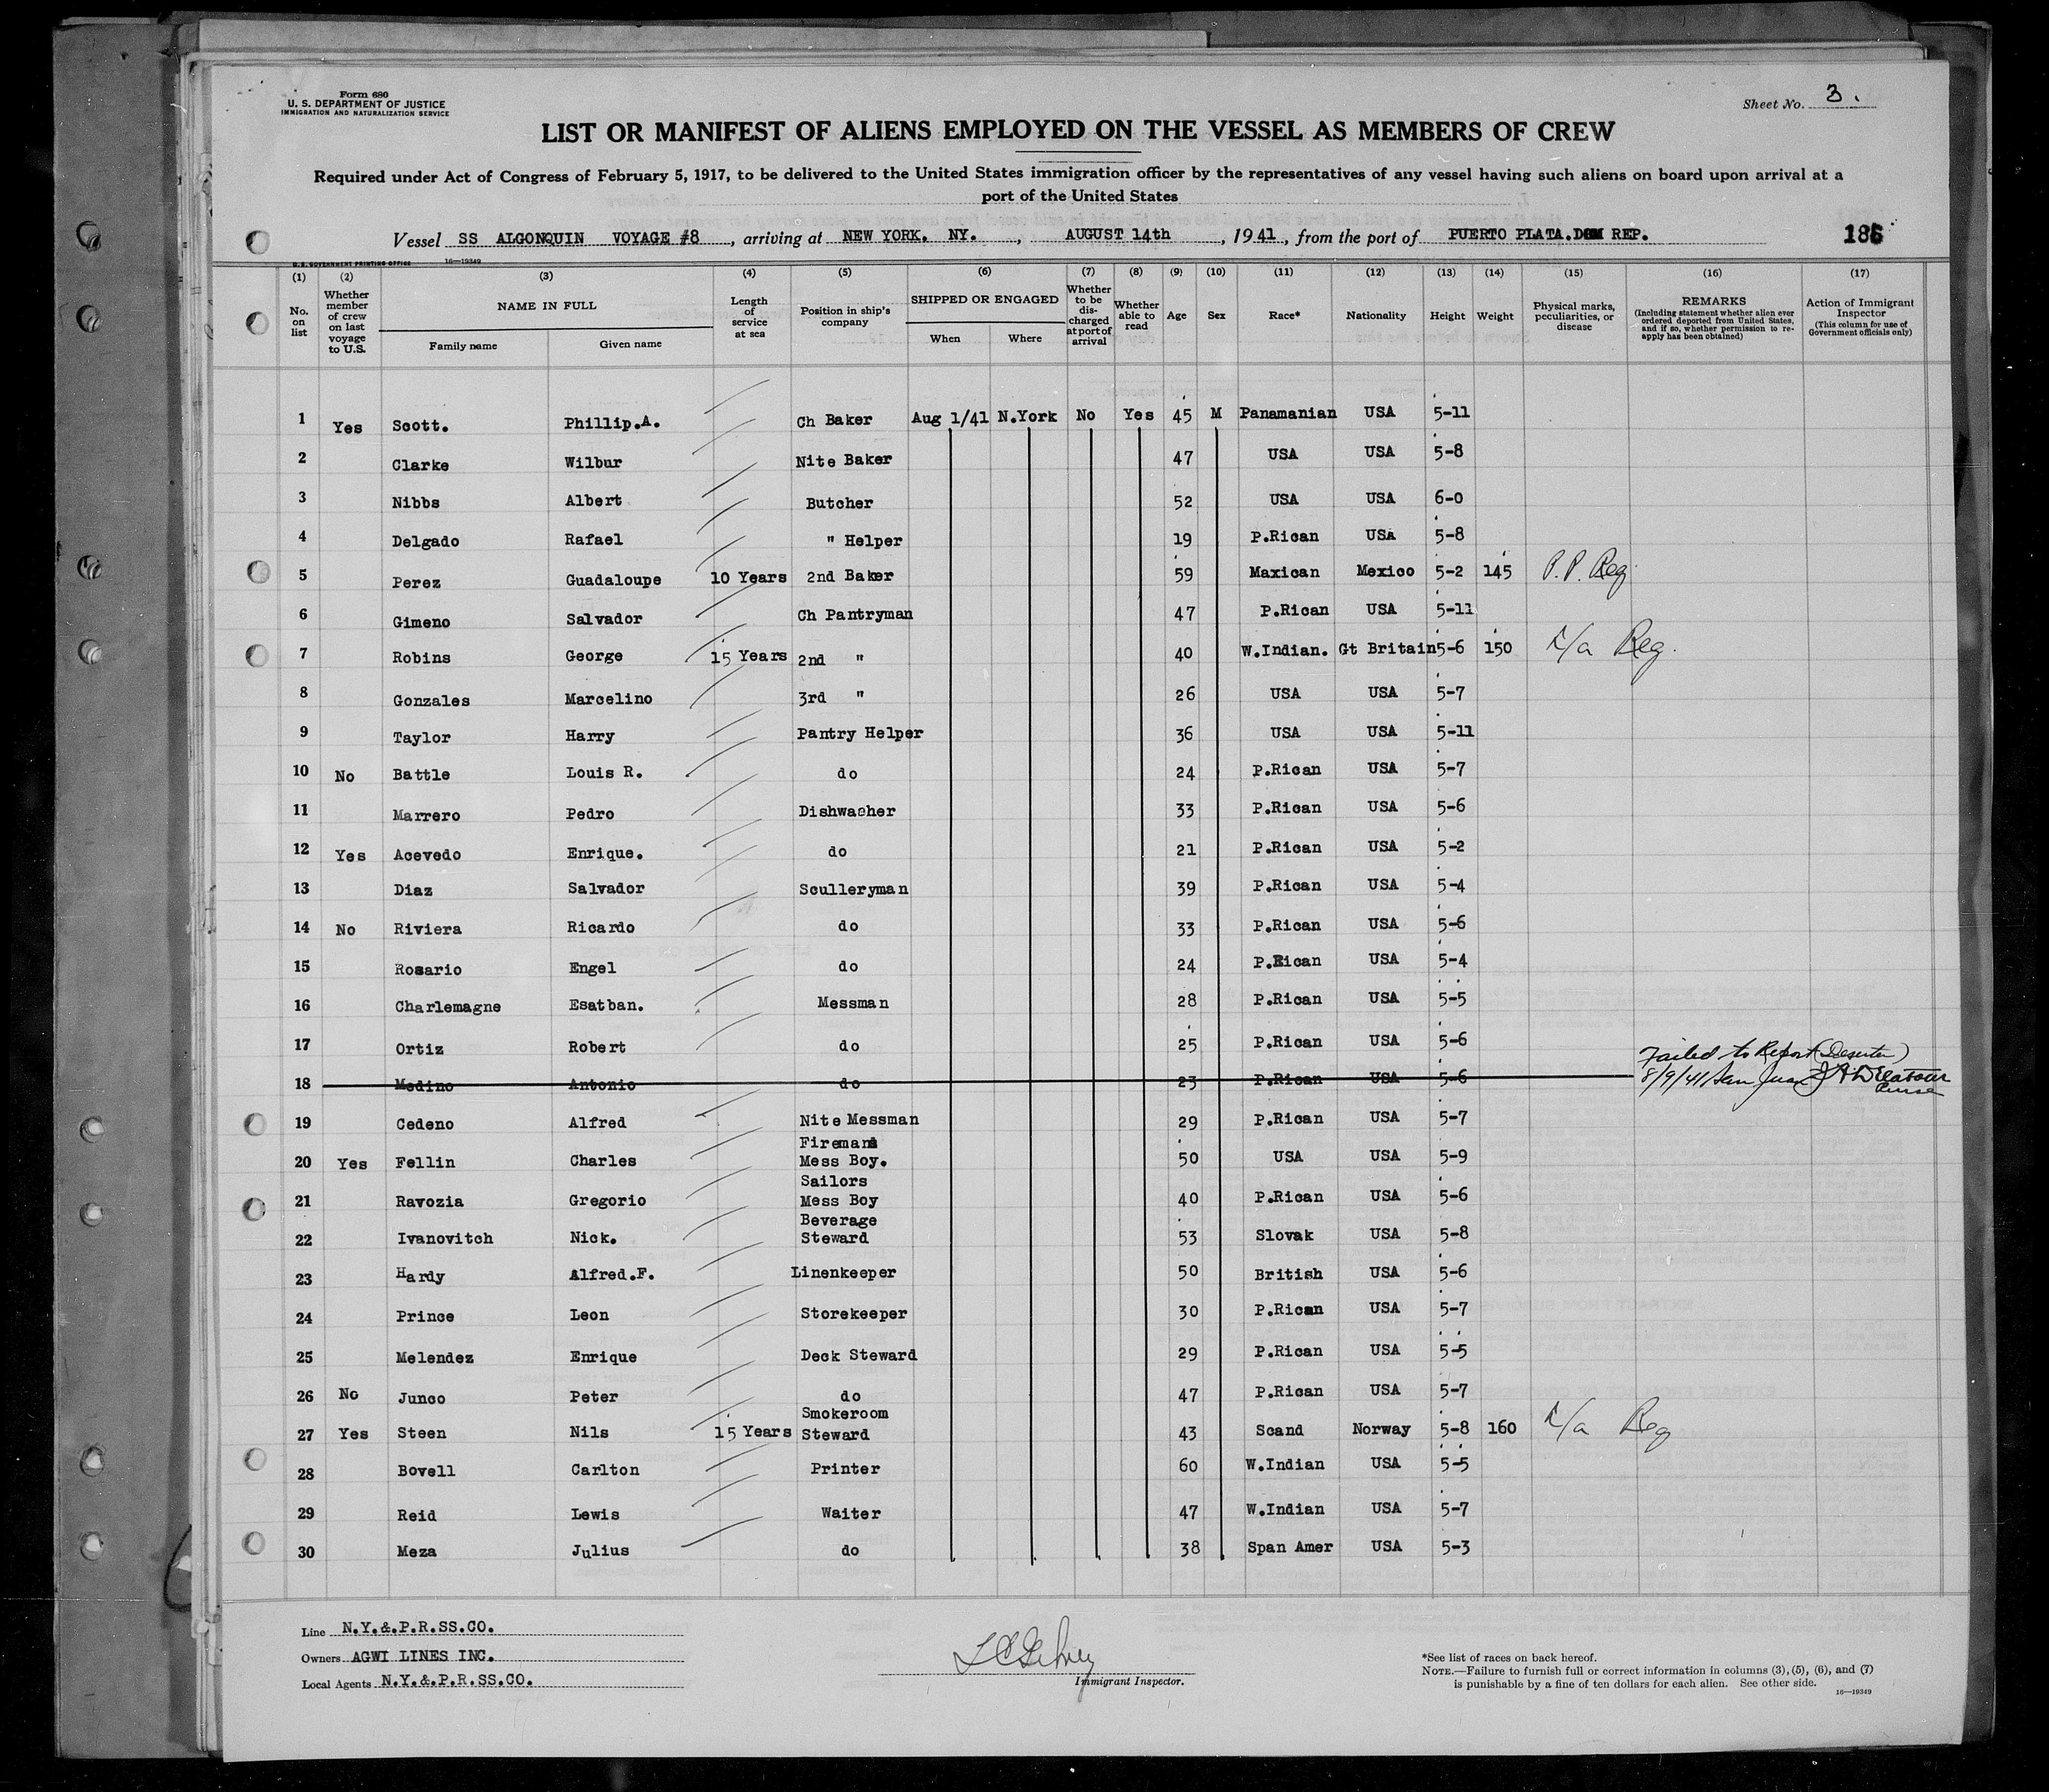 Form 680
U. S. DEPARTMENT OF JUSTICE
IMMIGRATION AND NATURALIZATION SERVICE
Sheet No. 3.
LIST OR MANIFEST OF ALIENS EMPLOYED ON THE VESSEL AS MEMBERS OF CREW
Required under Act of Congress of February 5, 1917, to be delivered to the United States immigration officer by the representatives of any vessel having such aliens on board upon arrival at a
port of the United States
Vessel SS ALGONQUIN VOYAGE #8, arriving at NEW YORK. NY., AUGUST 14th, 1941, from the port of PUERTO PLATA.DOM REP. 186
U. S. GOVERNMENT PRINTING OFFICE 16—19349
(1) (2) (3) (4) (5) (6) (7) (8) (9) (10) (11) (12) (13) (14) (15) (16) (17)
No. on list
Whether member of crew on last voyage to U.S.
NAME IN FULL
Family name
Given name
Length of service at sea
Position in ship's company
SHIPPED OR ENGAGED
When
Where
Whether to be discharged at port of arrival
Whether able to read
Age
Sex
Race*
Nationality
Height
Weight
Physical marks, peculiarities, or disease
REMARKS
(Including statement whether alien ever ordered deported from United States, and if so, whether permission to re-apply has been obtained)
Action of Immigrant Inspector
(This column for use of Government officials only)
1 Yes Scott. Phillip.A. Ch Baker Aug 1/41 N.York No Yes 45 M Panamanian USA 5-11
2 Clarke Wilbur Nite Baker 47 USA USA 5-8
3 Nibbs Albert Butcher 52 USA USA 6-0
4 Delgado Rafael " Helper 19 P.Rican USA 5-8
5 Perez Guadaloupe 10 Years 2nd Baker 59 Maxican Mexico 5-2 145 P.P. Reg.
6 Gimeno Salvador Ch Pantryman 47 P.Rican USA 5-11
7 Robins George 15 Years 2nd " 40 W.Indian. Gt Britain 5-6 150 Reg.
8 Gonzales Marcelino 3rd " 26 USA USA 5-7
9 Taylor Harry Pantry Helper 36 USA USA 5-11
10 No Battle Louis R. do 24 P.Rican USA 5-7
11 Marrero Pedro Dishwasher 33 P.Rican USA 5-6
12 Yes Acevedo Enrique. do 21 P.Rican USA 5-2
13 Diaz Salvador Sculleryman 39 P.Rican USA 5-4
14 No Riviera Ricardo do 33 P.Rican USA 5-6
15 Rosario Engel do 24 P.Rican USA 5-4
16 Charlemagne Esatban. Messman 28 P.Rican USA 5-5
17 Ortiz Robert do 25 P.Rican USA 5-6
Failed to Report (Deserter)
18 Medino Antonio do 23 P.Rican USA 5-6 8/9/41 San Juan
19 Cedeno Alfred Nite Messman 29 P.Rican USA 5-7
Firemans
20 Yes Fellin Charles Mess Boy. 50 USA USA 5-9
Sailors
21 Ravozia Gregorio Mess Boy 40 P.Rican USA 5-6
Beverage
22 Ivanovitch Nick. Steward 53 Slovak USA 5-8
23 Hardy Alfred.F. Linenkeeper 50 British USA 5-6
24 Prince Leon Storekeeper 30 P.Rican USA 5-7
25 Melendez Enrique Deck Steward 29 P.Rican USA 5-5
26 No Junco Peter do 47 P.Rican USA 5-7
Smokeroom
27 Yes Steen Nils 15 Years Steward 43 Scand Norway 5-8 160 Reg
28 Bovell Carlton Printer 60 W.Indian USA 5-5
29 Reid Lewis Waiter 47 W.Indian USA 5-7
30 Meza Julius do 38 Span Amer USA 5-3
Line N.Y.&.P.R.SS.CO.
Owners AGWI LINES INC.
Local Agents N.Y.&.P.R.SS.CO.
Immigrant Inspector.
*See list of races on back hereof.
NOTE.—Failure to furnish full or correct information in columns (3), (5), (6), and (7)
is punishable by a fine of ten dollars for each alien. See other side.
16—19349